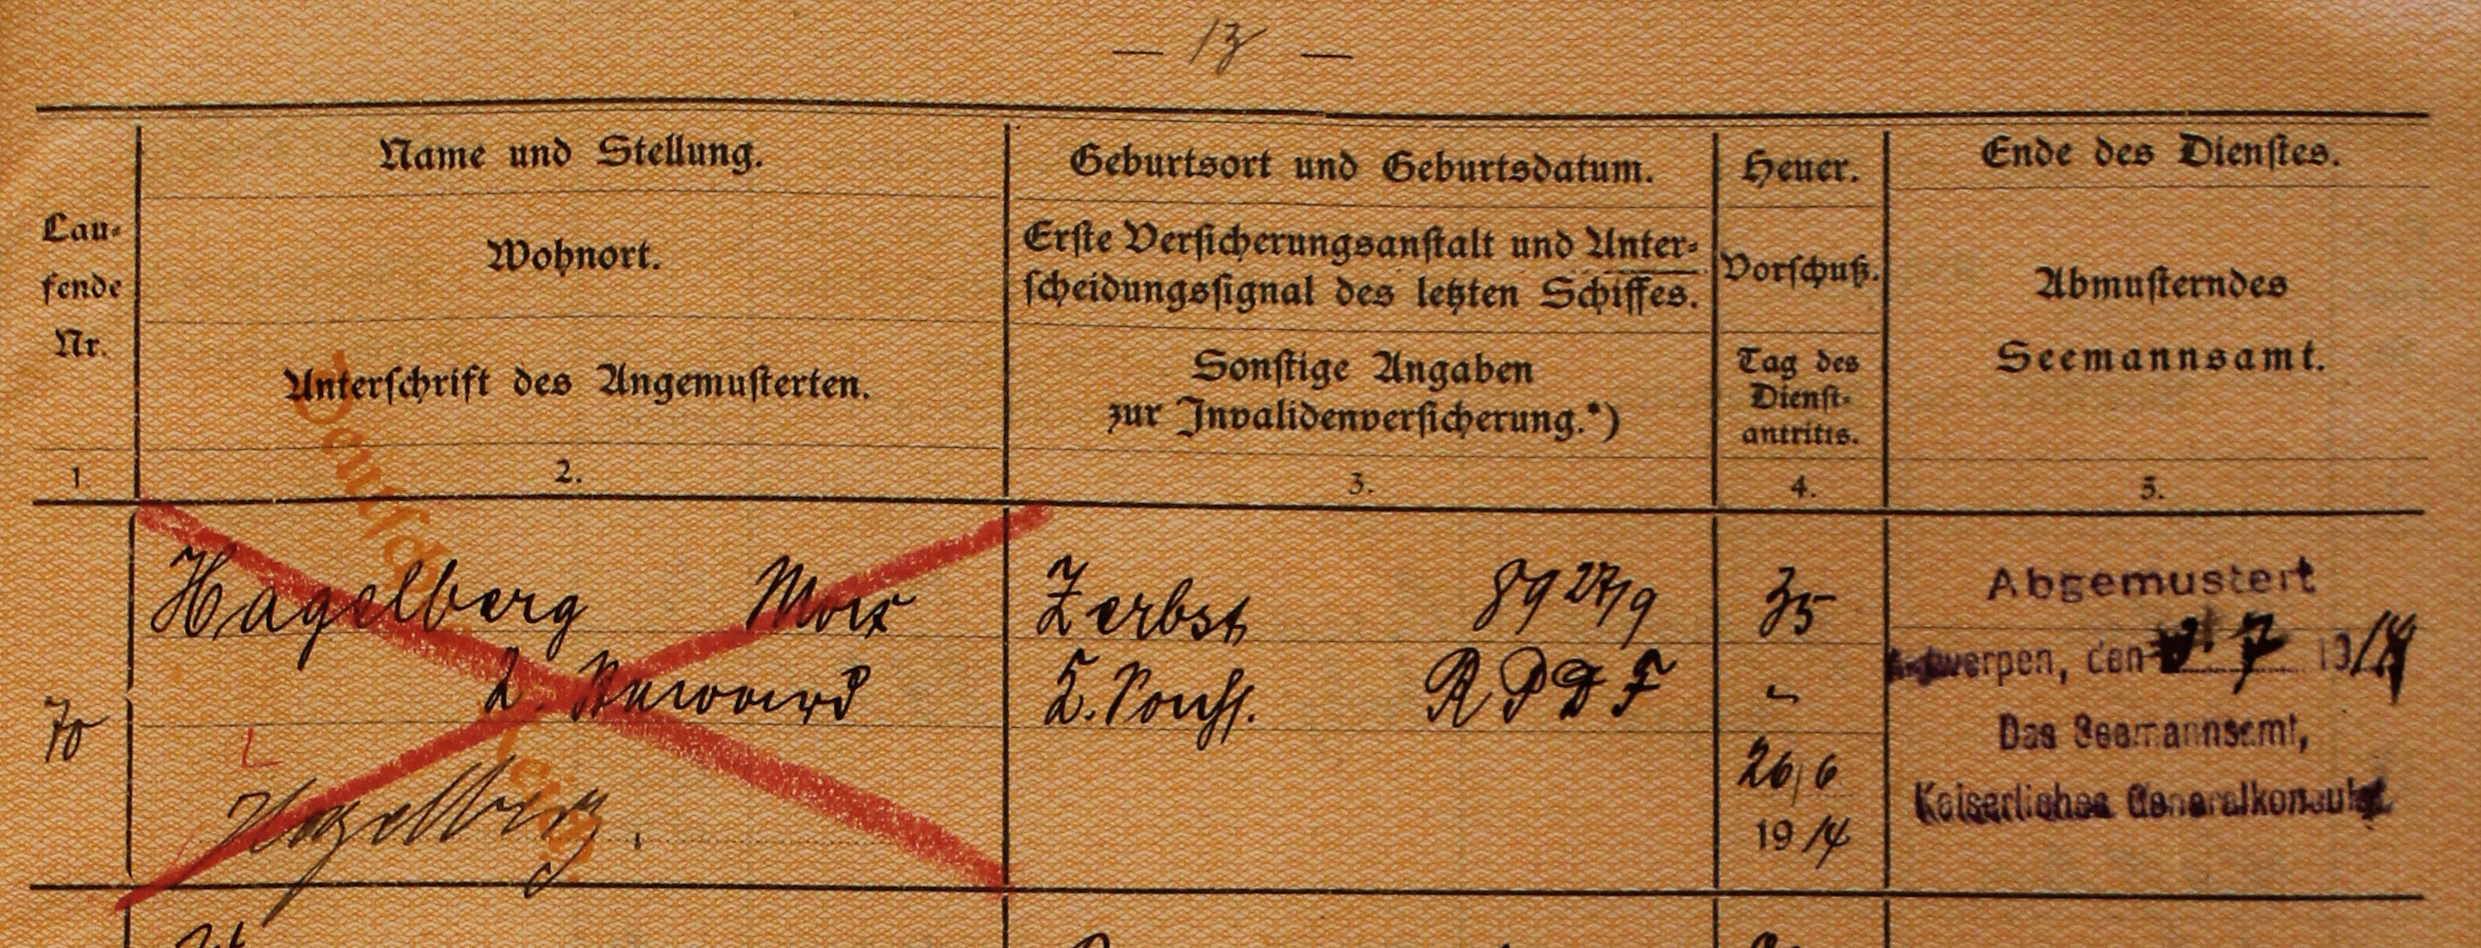 — 13 —
Lau-
fende
Nr.
Name und Stellung.
Wohnort.
Unterschrift des Angemusterten.
Geburtsort und Geburtsdatum.
Erste Versicherungsanstalt und Unter-
scheidungssignal des letzten Schiffes.
Sonstige Angaben
zur Invalidenversicherung.*)
Heuer.
Vorschuß.
Tag des
Dienst-
antritts.
Ende des Dienstes.
Abmusterndes
Seemannsamt.
1.
2.
3.
4.
5.
70
Hagelberg Max
2. Steward
Hagelberg.
Zerbst 89 27/9
RPDF
35
-
26/6
1914
Abgemustert
Antwerpen, den 7 1914
Das Seemannsamt,
Kaiserliches Generalkonsulat